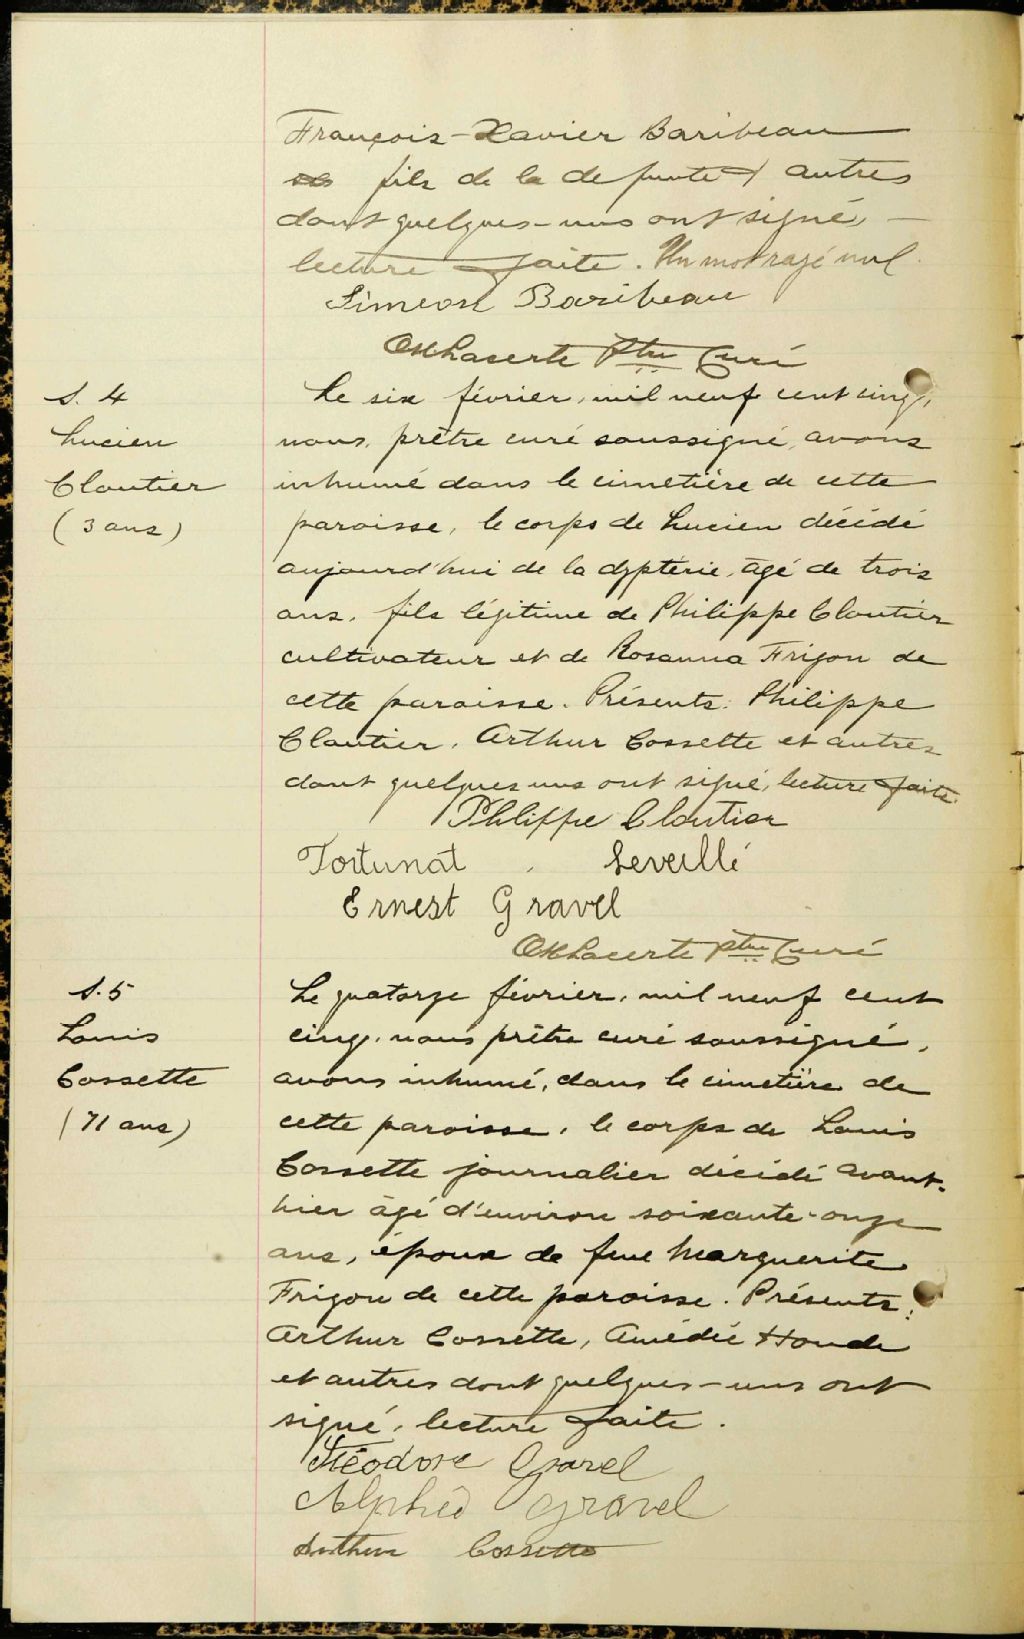 François-Xavier Baribeau
fils de la defunte et autres
dont quelques-uns ont signé,
lecture faite. Un mot rayé nul.
Simeon Baribeau
Ptre Curé
S. 4
Lucien
Cloutier
(3 ans)
Le six février, mil neuf cent cinq,
nous, prêtre curé soussigné, avons
inhumé dans le cimetière de cette
paroisse, le corps de Lucien décédé
aujourd'hui de la dyptérie, âgé de trois
ans, fils légitime de Philippe Cloutier
cultivateur et de Rosanna Frigon de
cette paroisse. Présents: Philippe
Cloutier, Arthur Cossette et autres
dont quelques uns ont signé, lecture faite.
Philippe Cloutier
Fortunat Leveillé
Ernest Gravel
ptre Curé
S. 5
Louis
Cossette
(71 ans)
Le quatorze février, mil neuf cent
cinq, nous prêtre curé soussigné,
avons inhumé, dans le cimetière de
cette paroisse, le corps de Louis
Cossette journalier décédé avant-
hier âgé d'environ soixante-onze
ans, époux de feue Marguerite
Frigon de cette paroisse. Présents:
Arthur Cossette, Amédée Houde
et autres dont quelques-uns ont
signé, lecture faite.
Théodore Gravel
Gravel
Arthur Cossette